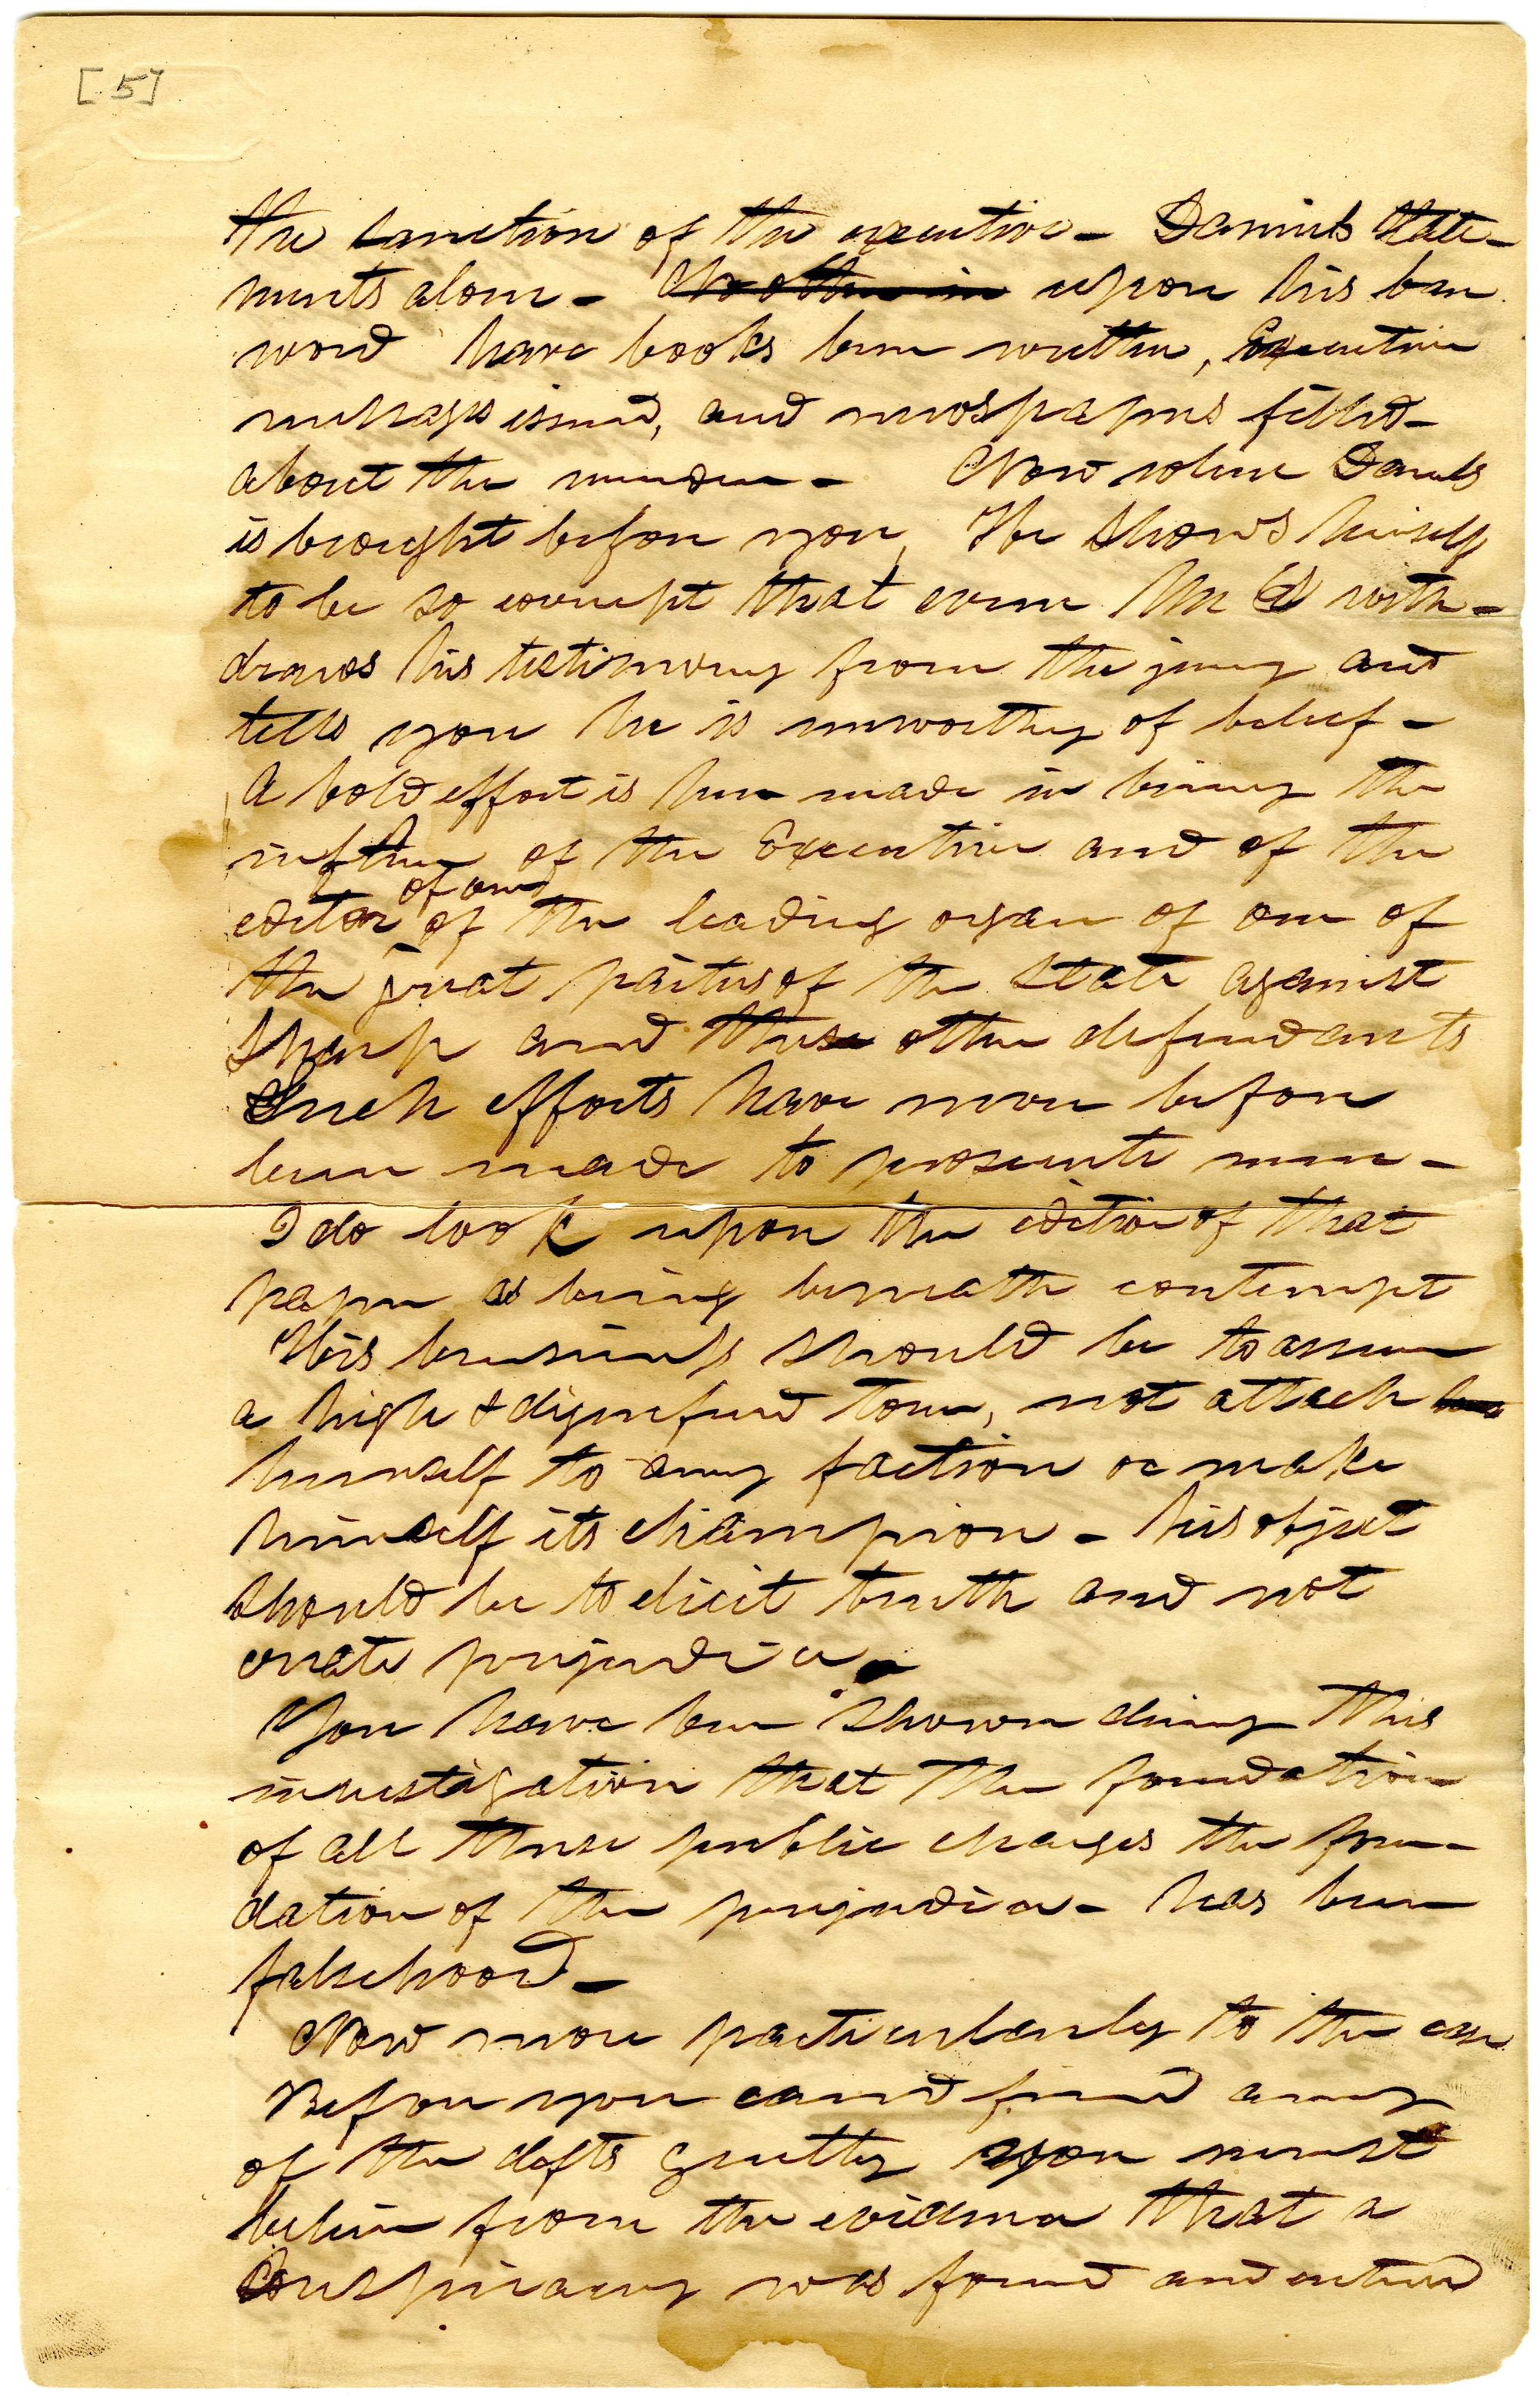 [5]
the sanction of the executive - Daniels state-
ments alone - No other in upon his bare
word have books been written, Executive
messages issued, and newspapers filled -
about the murder - Now when Daniels
is brought before you, He shows himself
to be so corrupt that even Mr with-
draws his testimony from the jury and
tells you he is unworthy of belief -
A bold effort is here made in bring the
influence of the Executive and of the
of one
editor of the leading organ of one of
the great parties of the State against
Sharp and these other defendants
Such efforts have never before
been made to prosecute men -
I do look upon the editor of that
paper as being beneath contempt
His business should be to assume
a high & dignified tone, not attach
himself to any faction or make
himself its champion - his object
should be to elicit truth and not
create prejudice -
You have been shown during this
investigation that the foundation
of all these public charges the foun-
dation of the prejudice - has been
falsehood -
Now more particularly to the case
Before you can find any
of the defts guilty you must
believe from the evidence that a
Conspiracy was formed and entered